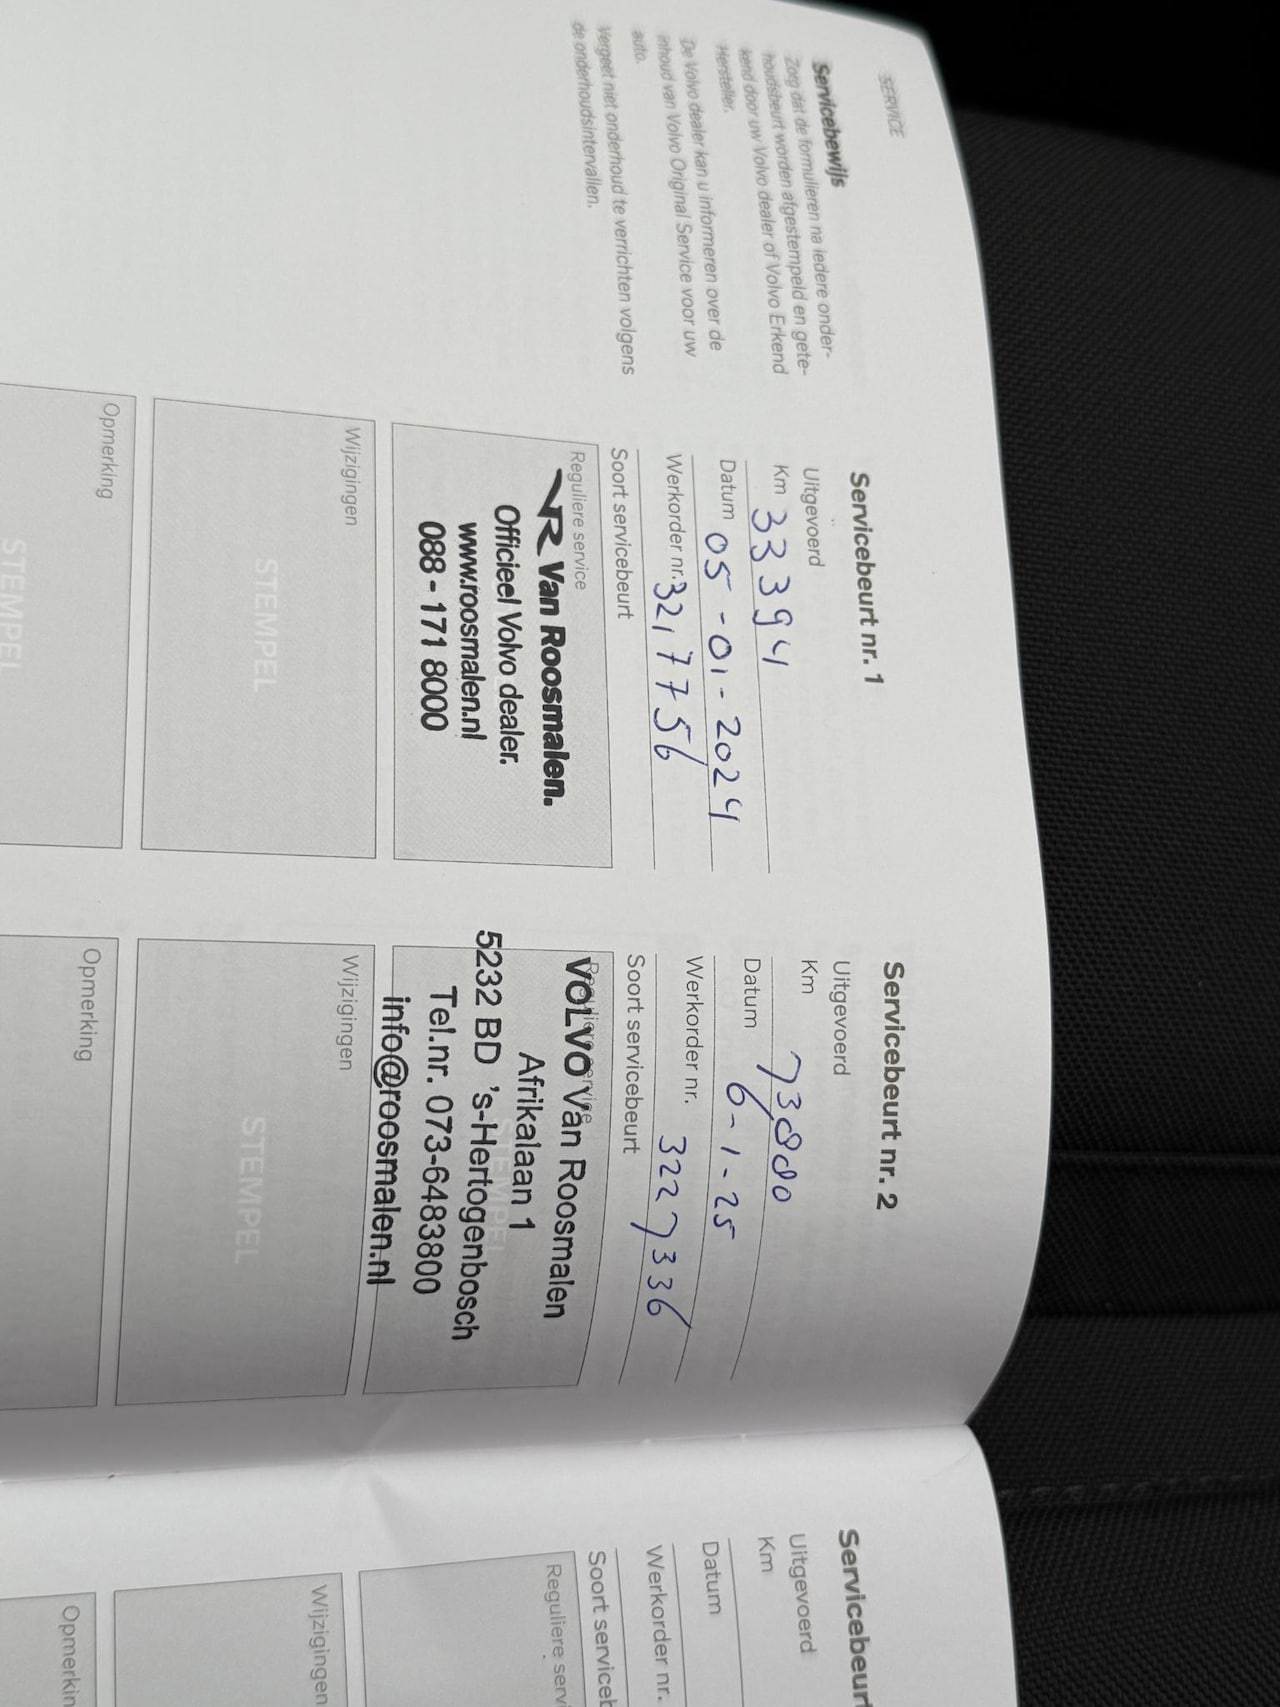 SERVICE
Servicebewijs
Zorg dat de formulieren na iedere onder-
houdsbeurt worden afgestempeld en gete-
kend door uw Volvo dealer of Volvo Erkend
Hersteller.
De Volvo dealer kan u informeren over de
inhoud van Volvo Original Service voor uw
auto.
Vergeet niet onderhoud te verrichten volgens
de onderhoudsintervallen.
Servicebeurt nr. 1
Uitgevoerd
Km 33394
Datum 05-01-2024
Werkorder nr. 3217756
Soort servicebeurt
Reguliere service
VR Van Roosmalen.
Officieel Volvo dealer.
www.roosmalen.nl
088 - 171 8000
Wijzigingen
STEMPEL
Opmerking
STEMPEL
Servicebeurt nr. 2
Uitgevoerd
Km 73880
Datum 6-1-25
Werkorder nr. 3227336
Soort servicebeurt
Reguliere service
STEMPEL
VOLVO Van Roosmalen
Afrikalaan 1
5232 BD 's-Hertogenbosch
Tel.nr. 073-6483800
info@roosmalen.nl
Wijzigingen
STEMPEL
Opmerking
Servicebeurt
Uitgevoerd
Km
Datum
Werkorder nr.
Soort serviceb
Reguliere serv
Wijzigingen
Opmerkin